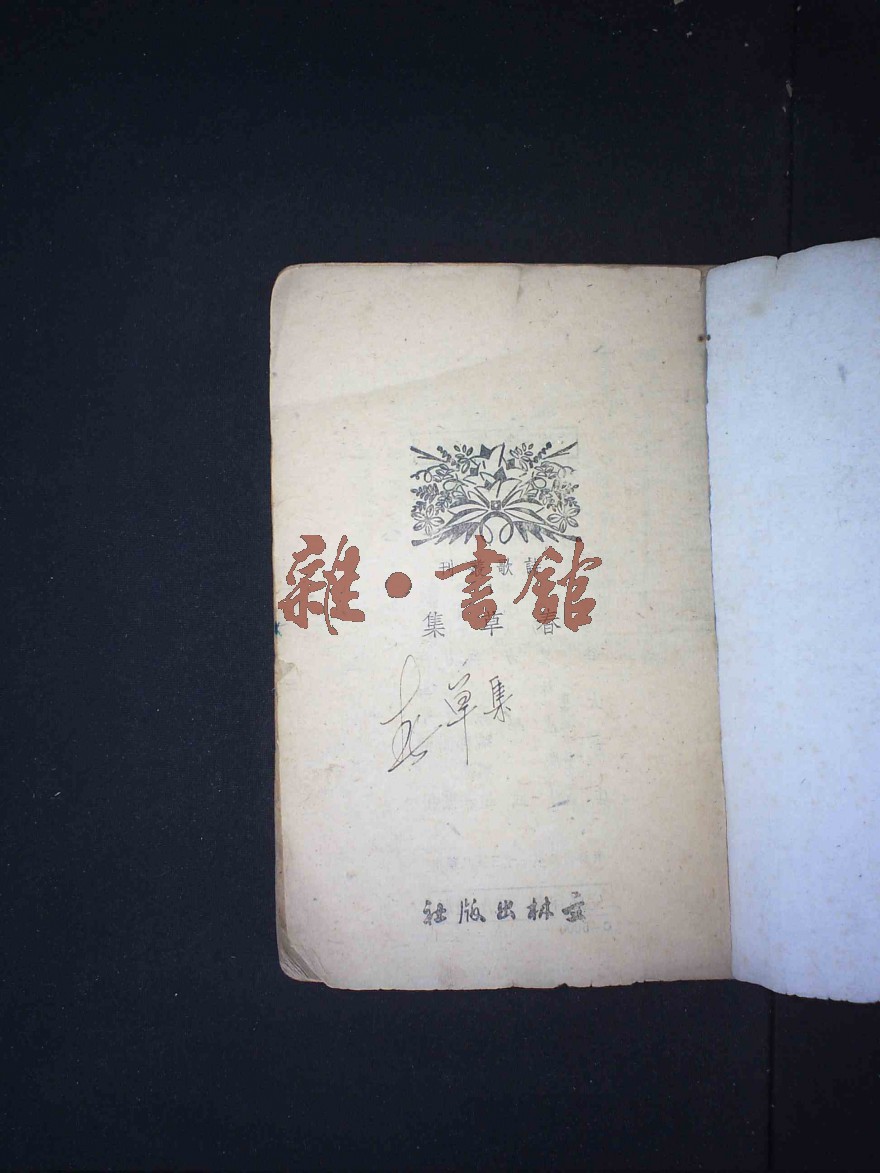 詩歌叢刊
雜·書館
春草集
春草集
林出版社